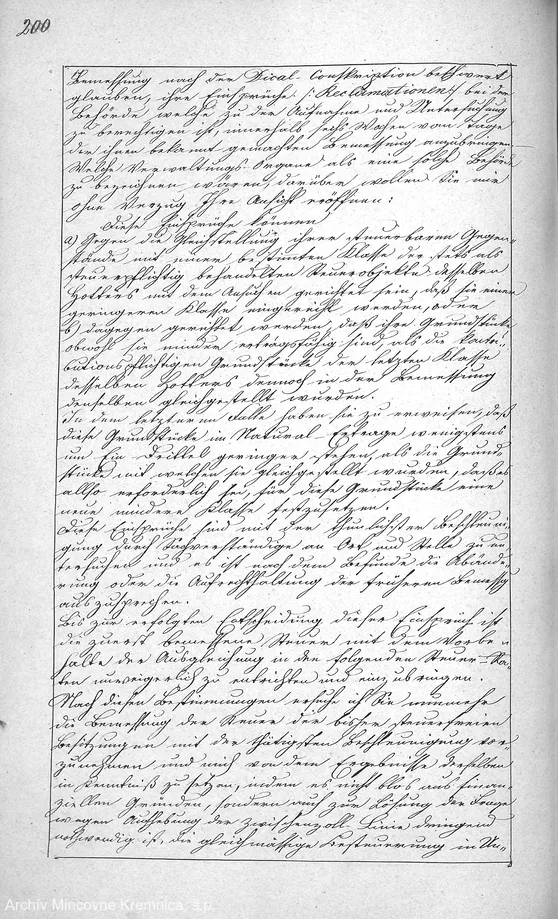 200
Bemessung nach der Dical-Conskription beschwert
glauben, ihre Einsprüche /:Reclamationen:/ bei der
Behörde, welche zu der Aufnahme und Untersuchung
zu berechtigen ist, innerhalb sechs Wochen vom Tage
der ihnen bekannt gemachten Bemessung anzubringen.
Welche Verwaltungs-Organe als eine solche Behörde
zu bezeichnen wären, darüber wollen Sie mir
ohne Verzug Ihre Ansicht eröffnen:
Diese Einsprüche können
a) Gegen die Gleichstellung ihrer steuerbaren Gegen-
stände mit einer bestimten Klasse der stets als
steuerpflichtig behandelten Steuerobjekte desselben
Hotters mit dem Ansuchen gerichtet sein, daß sie einer
geringeren Klasse eingereiht werden, oder
b) dagegen gerichtet werden, daß ihre Grundstücke
obwohl sie minder ertragsfähig sind als die kontri-
butionspflichtigen Grundstücke der letzten Klasse
desselben Hotters dennoch in der Bemessung
denselben gleichgestellt wurden.
In dem letzteren Falle haben sie zu erweisen, daß
diese Grundstücke im Natural-Ertrage wenigstens
um Ein Drittel geringer stehen, als die Grund-
stücke mit welchen sie gleichgestellt wurden, daß es
allso erforderlich sei, für diese Grundstücke eine
neue mindere Klasse festzusetzen.
Diese Einsprüche sind mit der thunlichsten Beschleuni-
gung durch Sachverständige an Ort und Stelle zu un-
tersuchen und es ist nach dem Befunde die Abände-
rung oder die Aufrechthaltung der früheren Bemessg
auszusprechen.
Bis zur erfolgten Entscheidung dieser Einsprüch ist
die zuerst bemessene Steuer mit dem Vorbe-
halte der Ausgleichung in den folgenden Steuer-Ra-
ten unweigerlich zu entrichten und einzubringen.
Nach diesen Bestimmungen ersuche ich Sie nunmehr
die Bemessung der Steuer der bisher steuerfreien
Besitzungen mit der thätigsten Beschleunigung vor-
zunehmen und mich von dem Ergebnisse derselben
in Kenntniß zu setzen, indem es nicht blos aus finan-
ziellen Gründen, sondern auch zur Lösung der Frage
wegen Aufhebung der Zwischenzoll-Linie dringend
nothwendig ist, die gleichmässige Besteuerung in Un-
Archív Mincovne Kremnica, š.p.